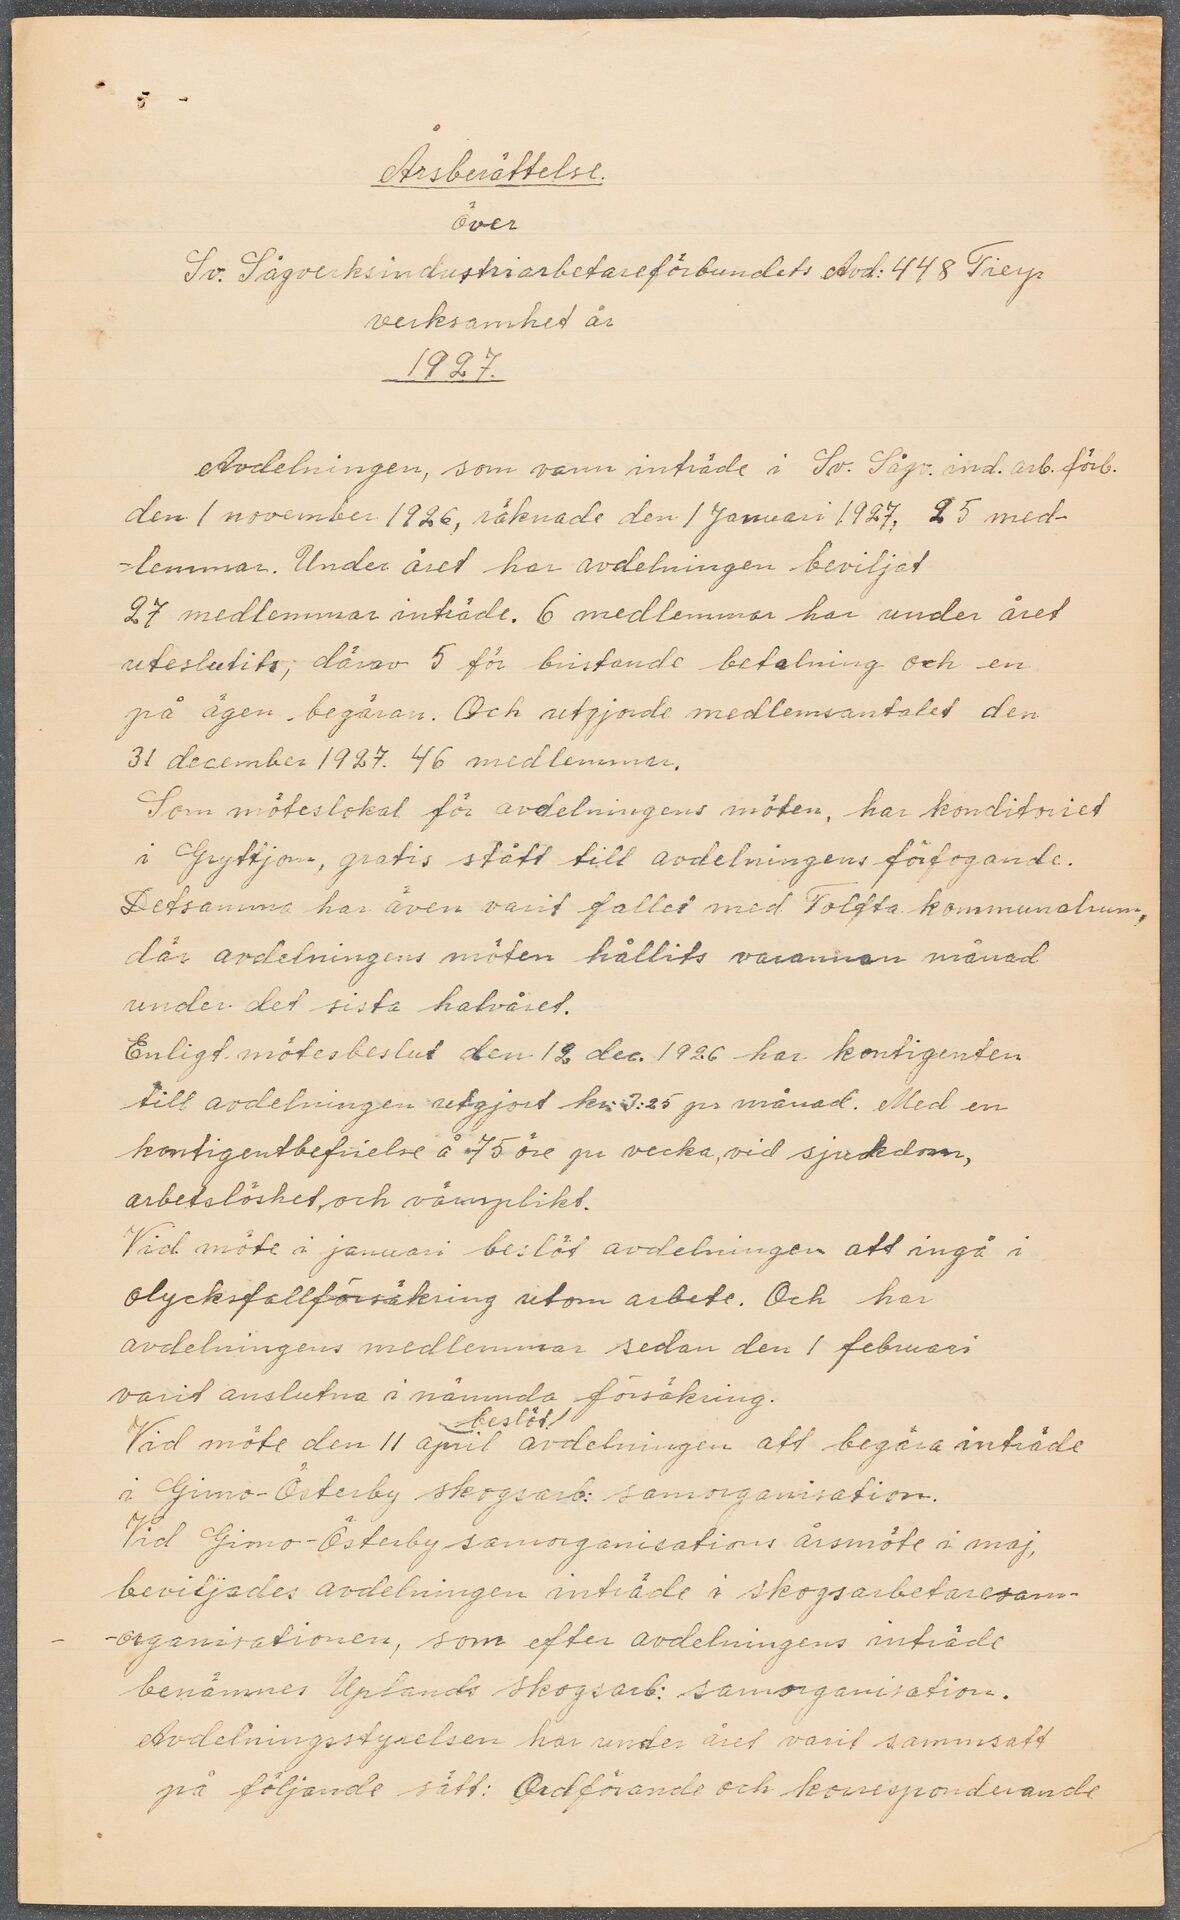 Årsberättelse.
över
Sv. Sågverksindustriarbetareförbundets Avd: 448 Tierp
verksamhet år
1927.
Avdelningen, som vann inträde i Sv. Sågv. ind. arb. förb.
den 1 november 1926, räknade den 1 Januari 1927, 25 med-
-lemmar. Under året har avdelningen beviljat
27 medlemmar inträde. 6 medlemmar har under året
uteslutits, därav 5 för bristande betalning och en
på ägen begäran. Och utgjorde medlemsantalet den
31 december 1927. 46 medlemmar.
Som möteslokal för avdelningens möten, har konditoriet
i Gryttjom, gratis stått till avdelningens förfogande.
Detsamma har även varit fallet med Tolfta kommunalrum,
där avdelningens möten hållits varannan månad
under det sista halvåret.
Enligt mötesbeslut den 12 dec. 1926 har kontigenten
till avdelningen utgjort kr: 3:25 pr månad. Med en
kontigentbefrielse å 75 öre pr vecka, vid sjukdom,
arbetslöshet, och värnplikt.
Vid möte i januari beslöt avdelningen att ingå i
olycksfallförsäkring utom arbete. Och har
avdelningens medlemmar sedan den 1 februari
varit anslutna i nämnda försäkring.
beslöt
Vid möte den 11 april avdelningen att begära inträde
i Gimo-Österby skogsarb: samorganisation.
Vid Gimo-Österby samorganisations årsmöte i maj,
beviljades avdelningen inträde i skogsarbetaresam-
-organisationen, som efter avdelningens inträde
benämnes Uplands skogsarb: samorganisation.
Avdelningsstyrelsen har under året varit sammsatt
på följande sätt: Ordförande och korresponderande